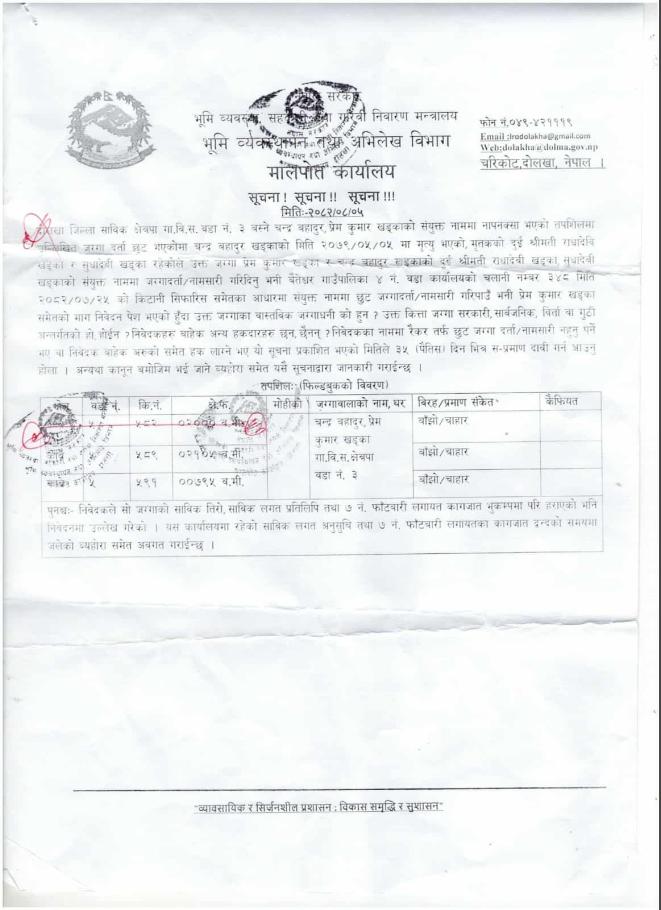 सरकार
भूमि व्यवस्था, सहकारी तथा गरिबी निवारण मन्त्रालय
भूमि व्यवस्थापन तथा अभिलेख विभाग
मालपोत कार्यालय
फोन नं.०४९-४२१११९
Email :lrodolakha@gmail.com
Web:dolakha@dolma.gov.np
चरिकोट,दोलखा, नेपाल ।
सूचना! सूचना!! सूचना!!!
मितिः-२०८२/०८/०५
दोलखा जिल्ला साविक क्षेत्रपा गा.वि.स. वडा नं. ३ बस्ने चन्द्र बहादुर, प्रेम कुमार खड्काको संयुक्त नाममा नापनक्सा भएको तपशिलमा
उल्लिखित जग्गा दर्ता छुट भएकोमा चन्द्र बहादुर खड्काको मिति २०७९/०५/०५ मा मृत्यु भएको, मृतकको दुई श्रीमती राधादेवि
खड्का र सुधादेवी खड्का रहेकोले उक्त जग्गा प्रेम कुमार खड्का र चन्द्र बहादुर खड्काको दुई श्रीमती राधादेवी खड्का सुधादेवी
खड्काको संयुक्त नाममा जग्गादर्ता/नामसारी गरिदिनु भनी बैतेश्वर गाउँपालिका ४ नं. वडा कार्यालयको चलानी नम्बर ३४८ मिति
२०८२/०७/२५ को किटानी सिफारिस समेतका आधारमा संयुक्त नाममा छुट जग्गादर्ता/नामसारी गरिपाउँ भनी प्रेम कुमार खड्का
समेतको माग निवेदन पेश भएको हुँदा उक्त जग्गाका वास्तविक जग्गाधनी को हुन ? उक्त कित्ता जग्गा सरकारी, सार्वजनिक, विर्ता वा गुठी
अन्तर्गतको हो, होईन ? निवेदकहरु बाहेक अन्य हकदारहरु छन्, छैनन् ? निवेदकका नाममा रैकर तर्फ छुट जग्गा दर्ता/नामसारी नहुनु पर्ने
भए वा निवेदक बाहेक अरुको समेत हक लाग्ने भए यो सूचना प्रकाशित भएको मितिले ३५ (पैतिस) दिन भित्र स-प्रमाण दावी गर्न आउनु
होला । अन्यथा कानून बमोजिम भई जाने व्यहोरा समेत यसै सूचनाद्वारा जानकारी गराईन्छ ।
तपशिलः-(फिल्डबुकको विवरण)
वडा नं. कि.नं. क्षे.फ. मोहीको जग्गावालाको नाम, घर बिरह/प्रमाण संकेत कैफियत
५ ५८२ व.मी. चन्द्र बहादुर, प्रेम बाँझो/चाहार
कुमार खड्का
५ ५८९ ०२१०५ व.मी. गा.वि.स. क्षेत्रपा बाँझो/चाहार
वडा नं. ३
५ ५९१ ००७९५ व.मी. बाँझो/चाहार
पुनश्चः- निवेदकले सो जग्गाको साविक तिरो, साविक लगत प्रतिलिपि तथा ७ नं. फाँटवारी लगायत कागजात भुकम्पमा परि हराएको भनि
निवेदनमा उल्लेख गरेको । यस कार्यालयमा रहेको साविक लगत अनुसुचि तथा ७ नं. फाँटवारी लगायतका कागजात द्वन्दको समयमा
जलेको व्यहोरा समेत अवगत गराईन्छ ।
"व्यावसायिक र सिर्जनशील प्रशासन : विकास समृद्धि र सुशासन"